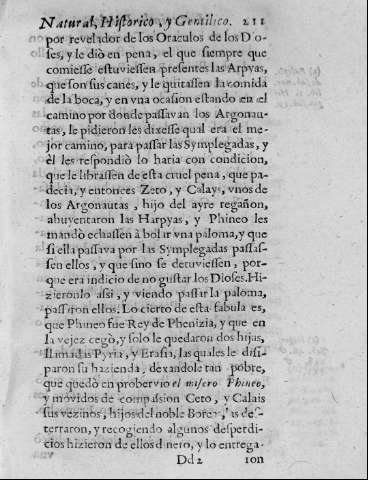 Natural, Historico, y Gentilico. 211
por revelador de los Oraculos de los Dio-
ses, y le diò en pena, el que siempre que
comiesse estuviessen presentes las Arpyas,
que son sus canes, y le quitassen la comida
de la boca, y en vna ocasion estando en el
camino por donde passavan los Argonau-
tas, le pidieron les dixesse qual era el me-
jor camino, para passar las Symplegadas, y
èl les respondiò lo haria con condicion,
que le librassen de esta cruel pena, que pa-
decia, y entonces Zeto, y Calays, vnos de
los Argonautas, hijo del ayre regañon,
ahuyentaron las Harpyas, y Phineo les
mandò echassen à bolar vna paloma, y que
si ella passava por las Symplegadas passas-
sen ellos, y que sino se detuviessen, por-
que era indicio de no gustar los Dioses. Hi-
zieronlo assi, y viendo passar la paloma,
passaron ellos. Lo cierto de esta fabula es,
que Phineo fue Rey de Phenizia, y que en
la vejez cegò, y solo le quedaron dos hijas,
llamadas Pyria, y Erasia, las quales le disi-
paron su hazienda, dexandole tan pobre,
que quedò en probervio el misero Phineo,
y movidos de compassion Ceto, y Calais
sus vezinos, hijos del noble Boreas, las des-
terraron, y recogiendo algunos desperdi-
cios hizieron de ellos dinero, y lo entrega-
Dd 2 ron